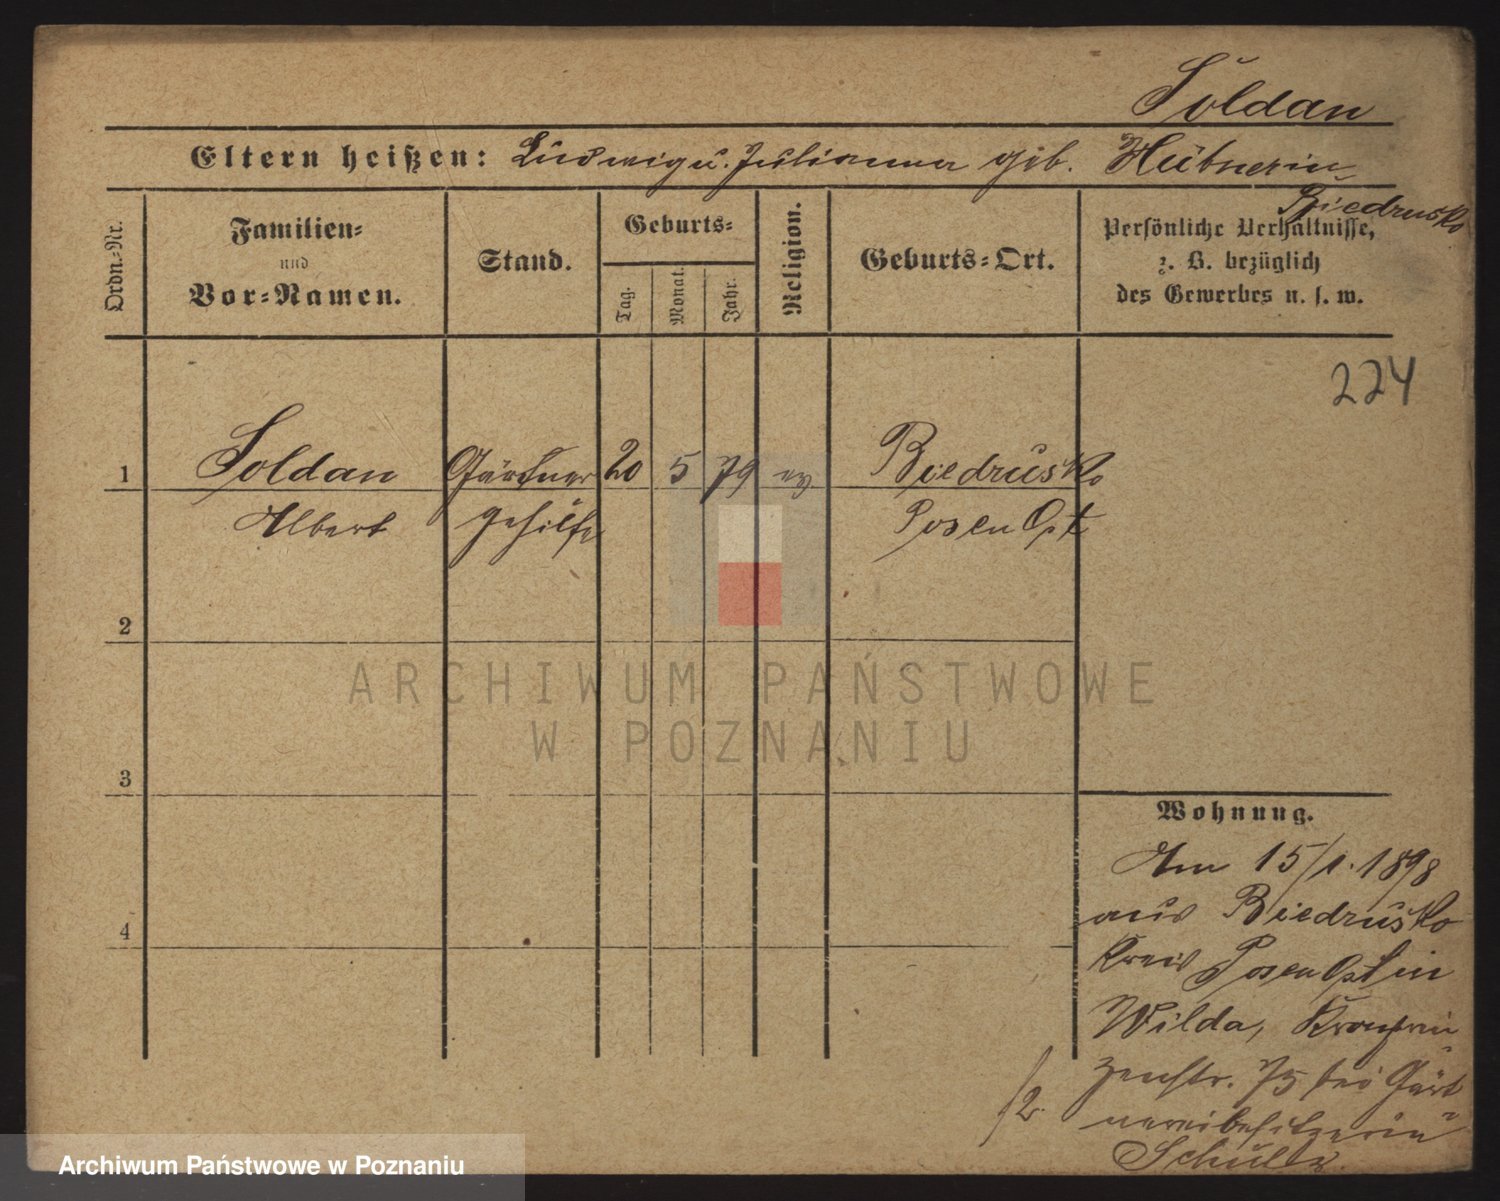 Soldan
Eltern heißen: Ludwig u. Julianna geb. Hübner in
Biedrusko
Ordn.-Nr.
Familien-
und
Vor-Namen.
Stand.
Geburts-
Tag.
Monat.
Jahr.
Religion.
Geburts-Ort.
Persönliche Verhältnisse,
z. B. bezüglich
des Gewerbes u. s. w.
224
1 Soldan Gärtner 20 5 79 ev. Biedrusko
Albert gehilfe Posen Ost
2
3
4
Wohnung.
Am 15/1. 1898
aus Biedrusko
Kreis Posen Ost in
Wilda, Kronprin-
zenstr. 75 bei Gärt-
nereibesitzerin
Schulz.
/2.
ARCHIWUM PAŃSTWOWE
W POZNANIU
Archiwum Państwowe w Poznaniu